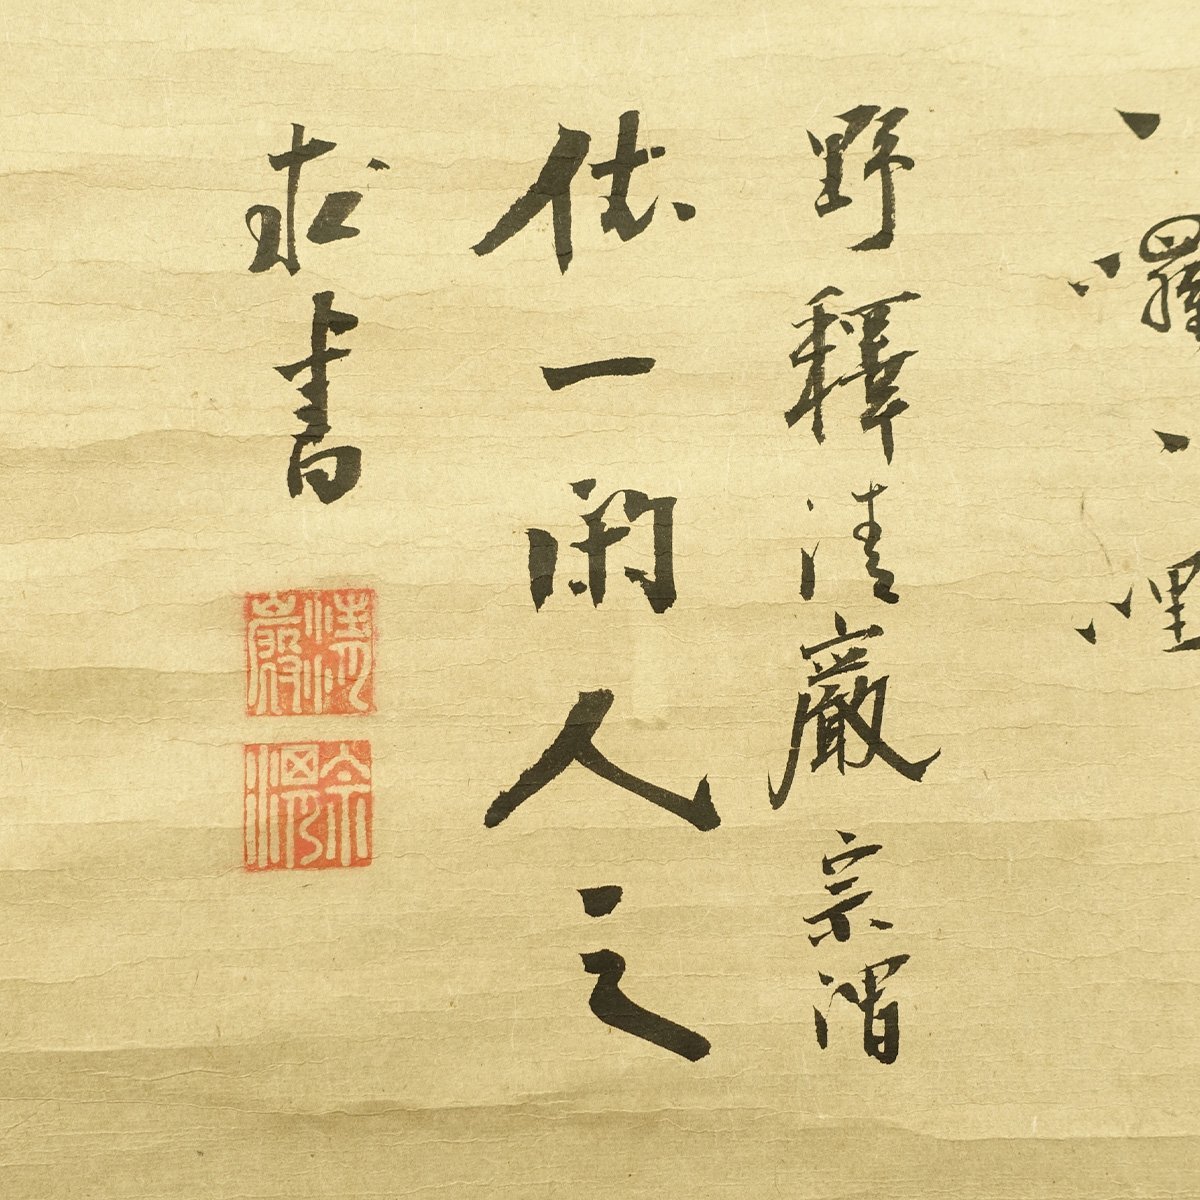 囉哩
野釋清巖宗渭
依一閑人之
求書
清巖
宗渭